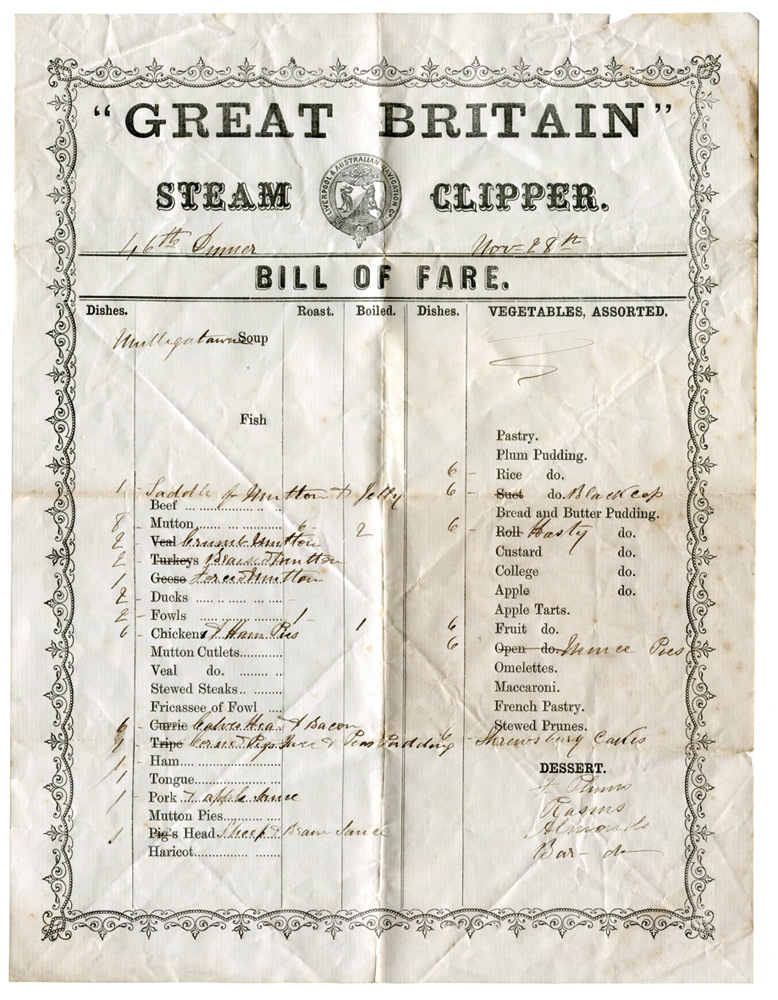 "GREAT BRITAIN"
STEAM CLIPPER.
LIVERPOOL & AUSTRALIAN NAVIGATION Co
46th Dinner Nov 28th
BILL OF FARE.
Dishes. Roast. Boiled. Dishes. VEGETABLES, ASSORTED.
Mulligatawn Soup
Fish
1 - Saddle of Mutton & Jelly
Beef
8 - Mutton 6 2
2 - Veal Crumb Mutton
2 - Turkeys Braised Mutton
1 - Geese Forced Mutton
2 Ducks
2 - Fowls 1 1
6 - Chicken & Ham Pies
Mutton Cutlets
Veal do.
Stewed Steaks
Fricassee of Fowl
6 - Currie Calves Head & Bacon
1 - Tripe Corned Pigs & Peas Pudding
1 - Ham
1 Tongue
1 - Pork & apple Sauce
Mutton Pies
1 Pig's Head Sheep & Brain Sauce
Haricot
Pastry.
Plum Pudding.
6 - Rice do.
6 - Suet do. Blackcap
Bread and Butter Pudding.
6 - Roll Hasty do.
Custard do.
College do.
Apple do.
Apple Tarts.
6 Fruit do.
6 Open do. Mince Pies
Omelettes.
Maccaroni.
French Pastry.
Stewed Prunes.
6 - Shrewsbury Cakes
DESSERT.
F Plums
Rasins
Almonds
Bar do